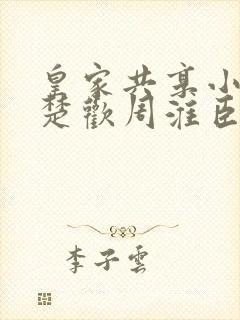 皇家共享小
楚歡周淮臣
李子雲